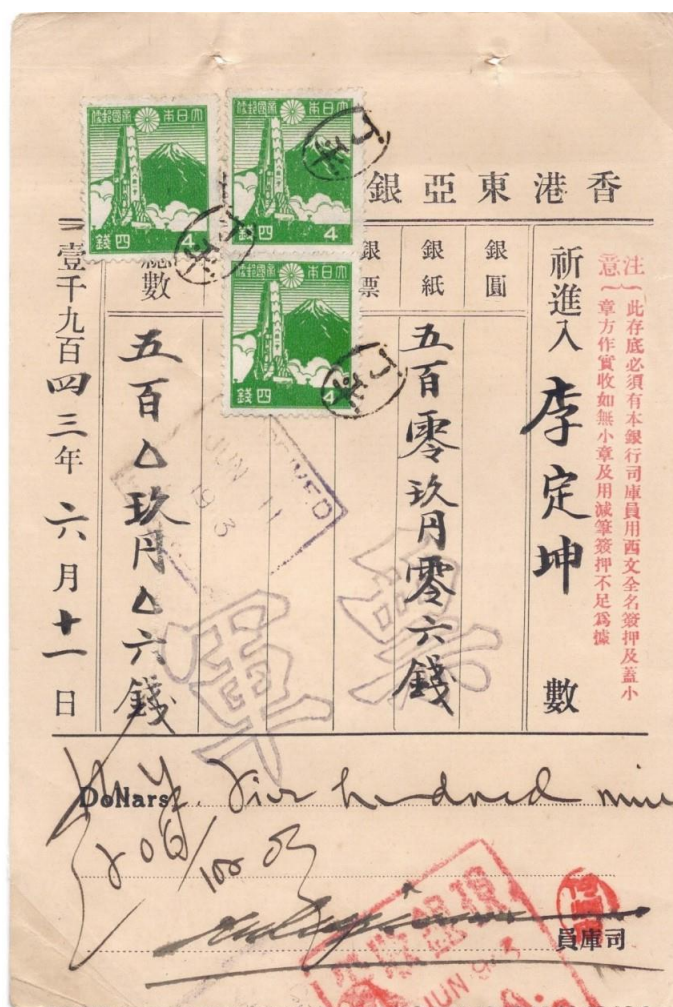 香港東亞銀
注意
此存底必須有本銀行司庫員用西文全名簽押及蓋小
章方作實收如無小章及用減筆簽押不足為據
祈進入 李定坤 數
銀圓
銀紙 五百零玖円零六錢
銀票
總數 五百△玖円△六錢
一壹千九百四三年六月十一日
大日本帝國郵便
四錢 4
大日本帝國郵便
四錢 4
大日本帝國郵便
四錢 4
RECEIVED
JUN 11
軍票
Dollars five hundred nine
司庫員
JUN